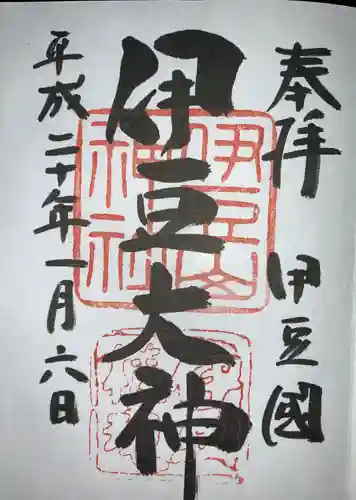 奉拝 伊豆國
伊豆大神
平成二十年一月六日
伊豆山神社